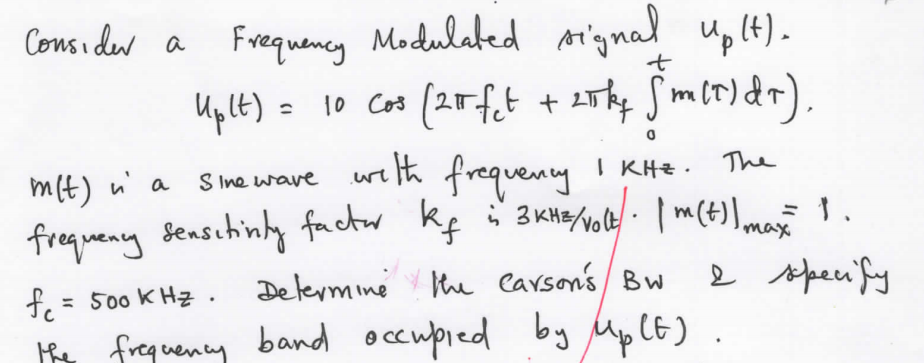 Consider a Frequency Modulated signal Up(t).
Up(t) = 10 cos (2πfct + 2πkf ∫₀ᵗ m(τ) dτ).
m(t) is a sinewave with frequency 1 KHz. The
frequency sensitivity factor kf is 3 KHz/volt. |m(t)|max = 1.
fc = 500 KHz. Determine the Carson's BW & specify
the frequency band occupied by Up(t).